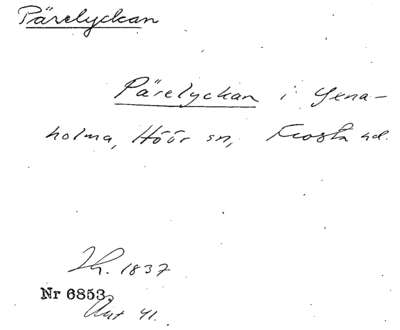 Pärelyckan
Pärelyckan i Yena-
holma, Höör sn, Frosta hd.
Th. 1837
Nr 6853
Ant 41.